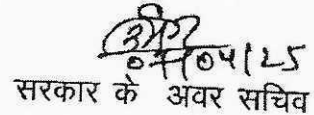 07/04/25
सरकार के अवर सचिव